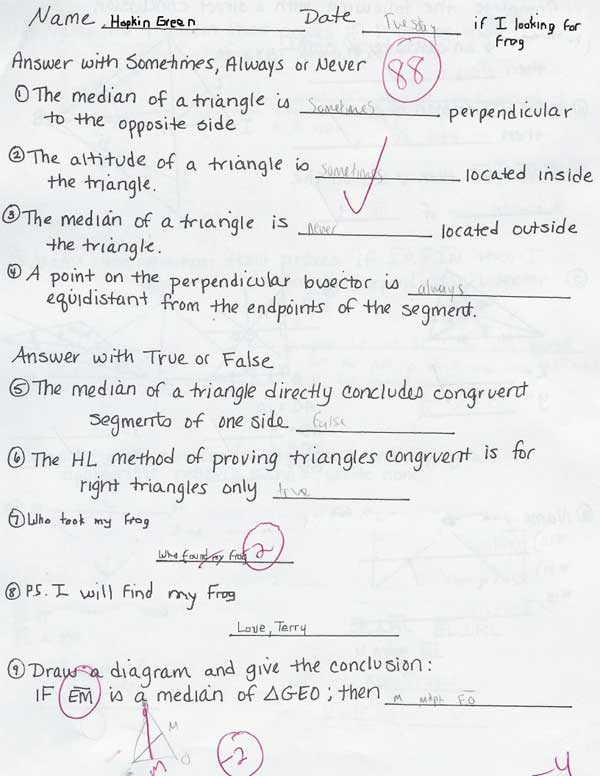 Name Hopkin Green Date Tuesday if I looking for
frog
88
Answer with Sometimes, Always or Never
① The median of a triangle is sometimes perpendicular
to the opposite side
② The altitude of a triangle is sometimes located inside
the triangle.
③ The median of a triangle is never located outside
the triangle.
④ A point on the perpendicular bisector is always
equidistant from the endpoints of the segment.
Answer with True or False
⑤ The median of a triangle directly concludes congruent
segments of one side false
⑥ The HL method of proving triangles congruent is for
right triangles only true
⑦ Who took my frog
Who found my frog 2
⑧ P.S. I will find my frog
Love, Terry
⑨ Draw a diagram and give the conclusion:
IF EM is a median of △GEO; then M mdpt FO
M
O
M
-2
-4